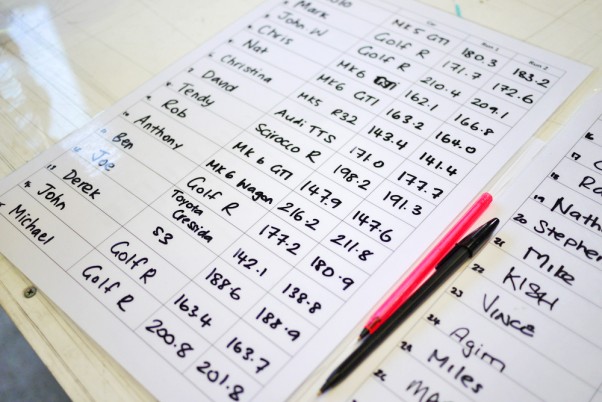 Run 1 Run 2
MK5 GTI 180.3 183.2
Mark Golf R 171.7 172.6
John W Golf R 210.4 209.1
Chris MK6 162.1 166.8
Nat MK6 GTI 163.2 164.0
Christina MK5 R32 143.4 141.4
David Audi TTS 171.0 177.7
Tendy Scirocco R 198.2 191.3
Rob MK6 GTI 147.9 147.6
Anthony MK6 Wagon 216.2 211.8
Ben Golf R 177.2 180.9
Joe Toyota Cressida 142.1 138.8
Derek S3 188.6 188.9
John Golf R 163.4 163.7
Michael Golf R 200.8 201.8
17
18
19 Nath
20 Stephen
21 Mike
22 KISH
23 VINCE
24 Agim
25 Miles
26